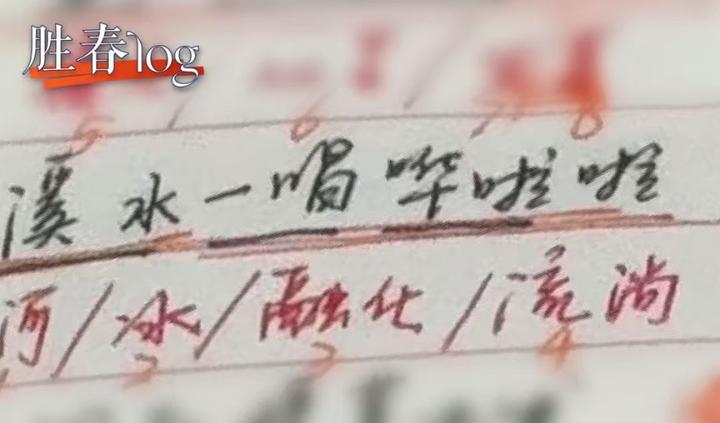 胜春log
5 6 7 8
溪水一唱哗啦啦
河/冰/融化/流淌
2 3 4